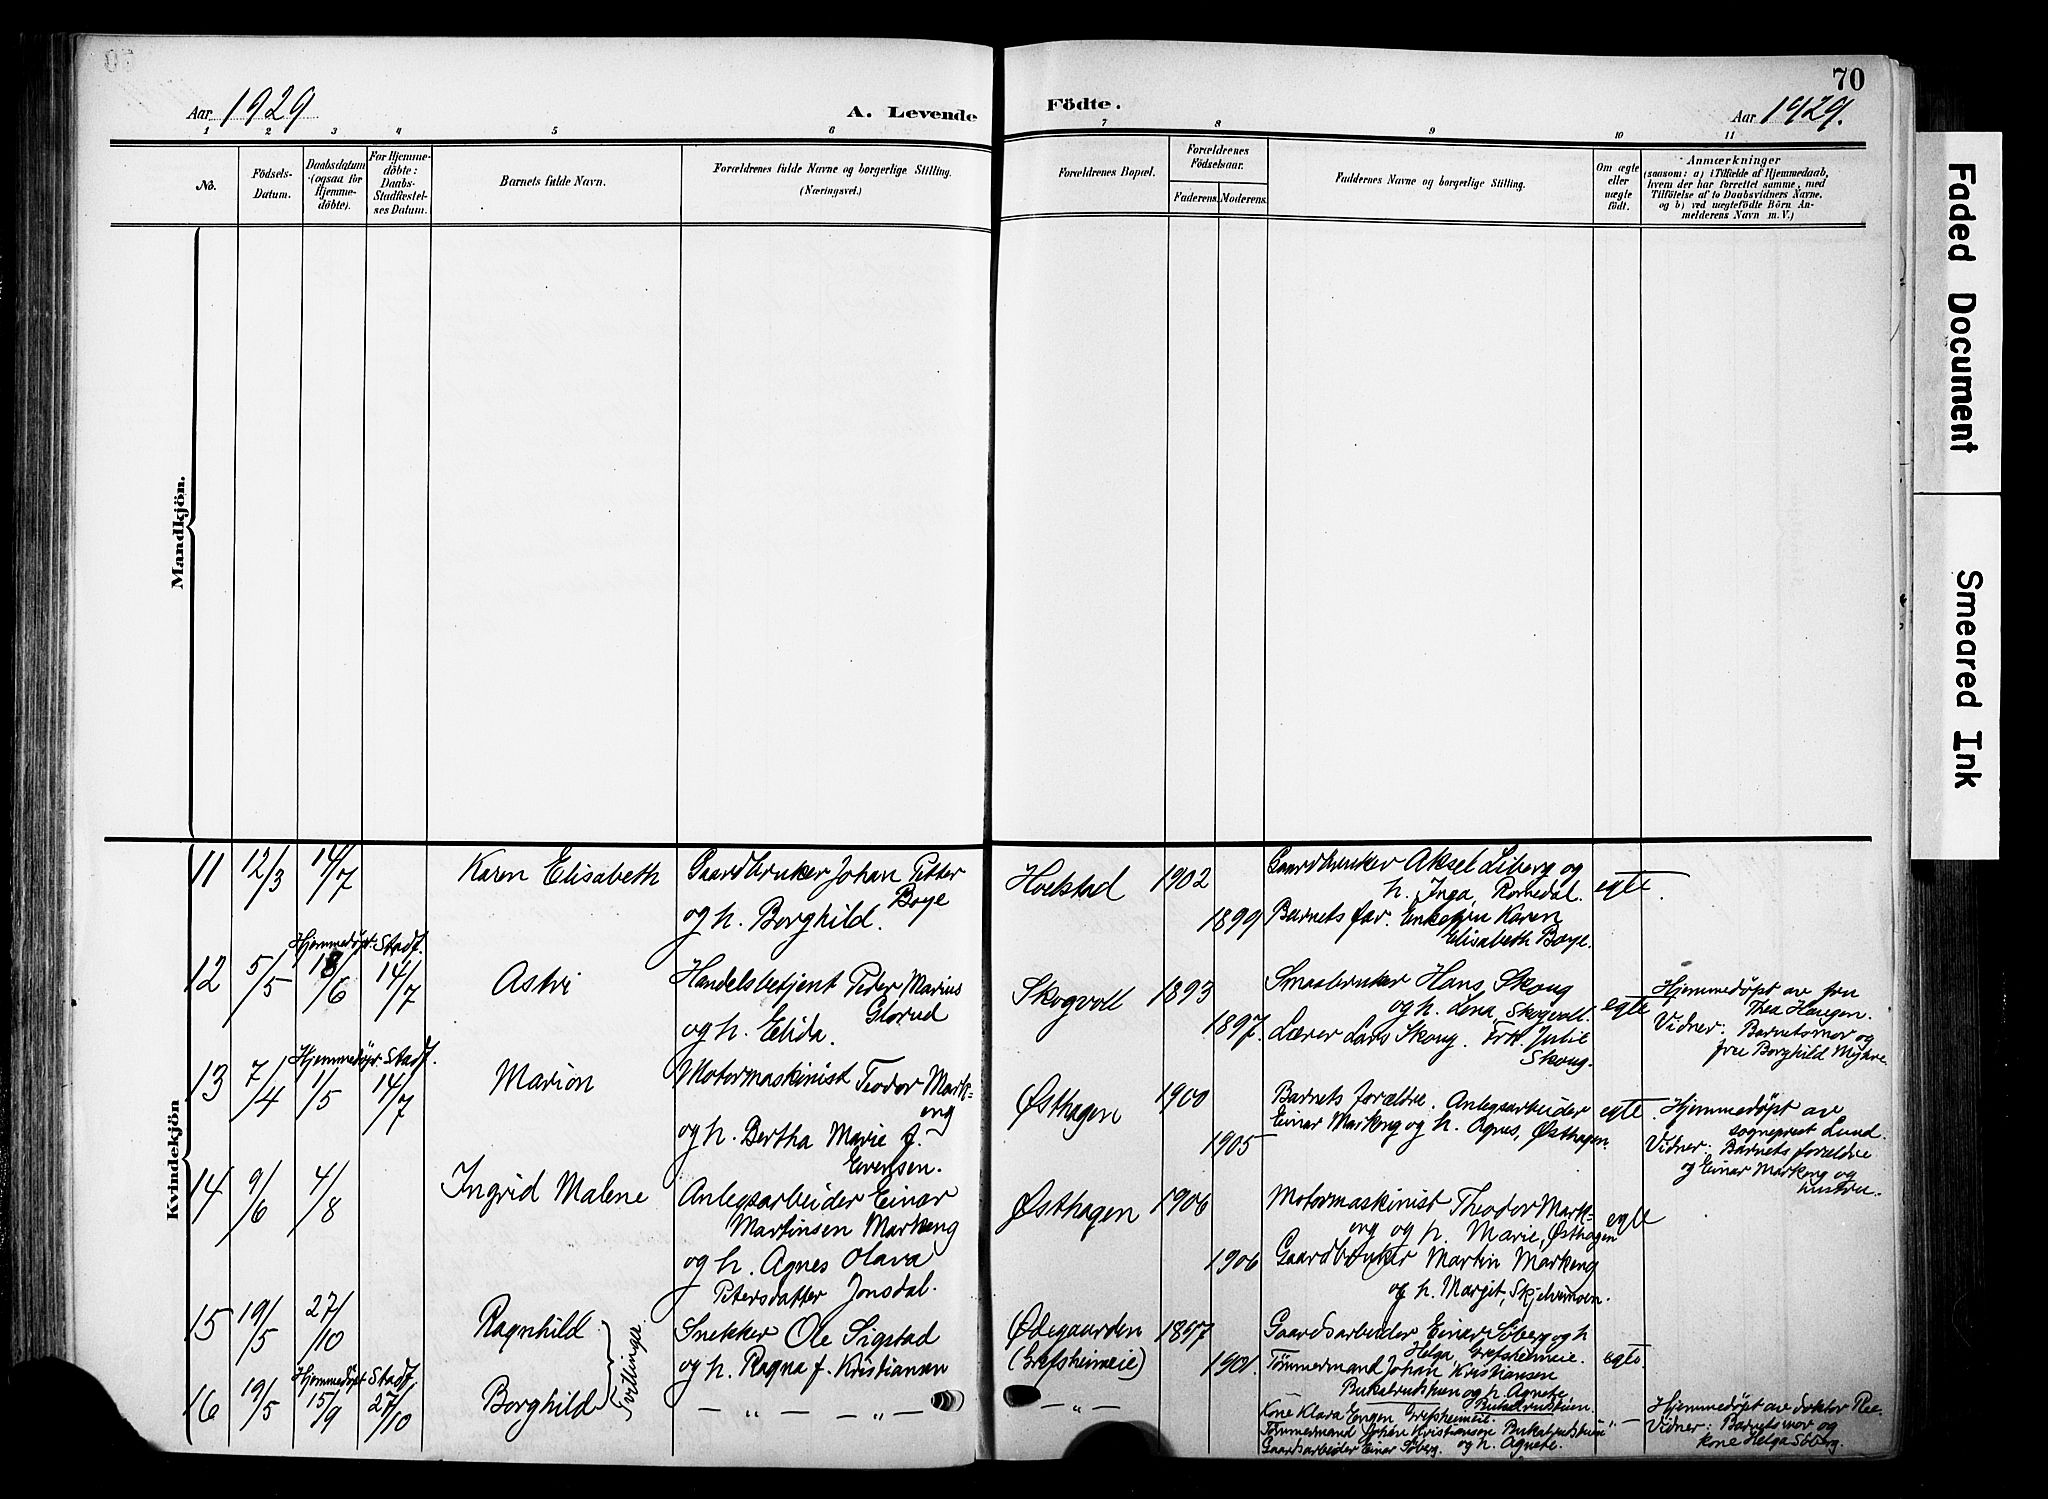 70
Aar 1929
A. Levende Födte.
Aar 1929.
1 2 3 4 5 6 7 8 9 10 11
No.
Födsels-
Datum.
Daabsdatum
(ogsaa for
Hjemme-
döbte).
For Hjemme-
döbte:
Daabs-
Stadfæstel-
ses Datum.
Barnets fulde Navn.
Forældrenes fulde Navne og borgerlige Stilling.
(Næringsvei.)
Forældrenes Bopæl.
Forældrenes
Födselsaar.
Faderens. Moderens.
Faddernes Navne og borgerlige Stilling.
Om ægte
eller
uægte
födt.
Anmærkninger
(saasom: a) i Tilfælde af Hjemmedaab,
hvem der har forrettet samme, med
Tilföielse af to Daabsvidners Navne,
og b) ved uægtefödte Börn An-
melderens Navn m. V.)
Mandkjön.
Kvindekjön
11 12/3 14/7 Karen Elisabeth
Gaardbruker Johan Petter
Boye
og h. Borghild.
Hoelstad 1902
1899
Gaardbruker Aksel Liberg og
h. Inga, Romedal.
Barnets far. Enkefru Karen
Elisabeth Boye.
egte.
Hjemmedøpt: Stadf.
12 5/5 18/6 14/7 Astri
Handelsbetjent Peder Marius
Glorud
og h. Elida.
Skogvoll 1893
1897.
Smaabruker Hans Skoug
og h. Lena, Skogvoll.
Lærer Lars Skoug. Frk. Julie
Skoug.
egte
Hjemmedøpt av fru
Thea Haugen.
Vidner: Barnets mor og
fru Borghild Myhre.
Hjemmedøpt: Stadf.
13 7/4 1/5 14/7 Marion
Motormaskinist Teodor Mark-
eng
og h. Bertha Marie f.
Evensen.
Østhagen 1900
1905
Barnets forældre. Anlegsarbeider
Einar Markeng og h. Agnes, Østhagen.
egte
Hjemmedøpt av
sogneprest Lund.
Vidner: Barnets forældre
og Einar Markeng og
hustru.
14 9/6 4/8 Ingrid Malene
Anlegsarbeider Einar
Martinsen Markeng
og h. Agnes Olava
Petersdatter Jonsdal.
Østhagen 1906
1906
Motormaskinist Theodor Mark-
eng og h. Marie, Østhagen
Gaardbruker Martin Markeng
og h. Margit, Skjelvimoen.
egte
15 19/5 27/10 Ragnhild
Tvillinger
Snekker Ole Sigstad
og h. Ragna f. Kristiansen
Ødegaarden
(Grefsheimeie) 1897
1901.
Gaardsarbeider Einar Søberg og h
Helga, Grefsheimeie.
Tømmermand Johan Kristiansen
og h. Agnete,
egte.
Hjemmedøpt Stadf.
16 19/5 15/9 27/10 Borghild
— „ — — „ —
— „ —
Kone Klara Engen Grefsheimeie.
Tømmermand Johan Kristiansen
og h. Agnete.
Gaardsarbeider Einar Søberg.
„ —
Hjemmedøpt av doktor Ree.
Vidner: Barnets mor og
kone Helga Søberg.
Faded Document
Smeared Ink